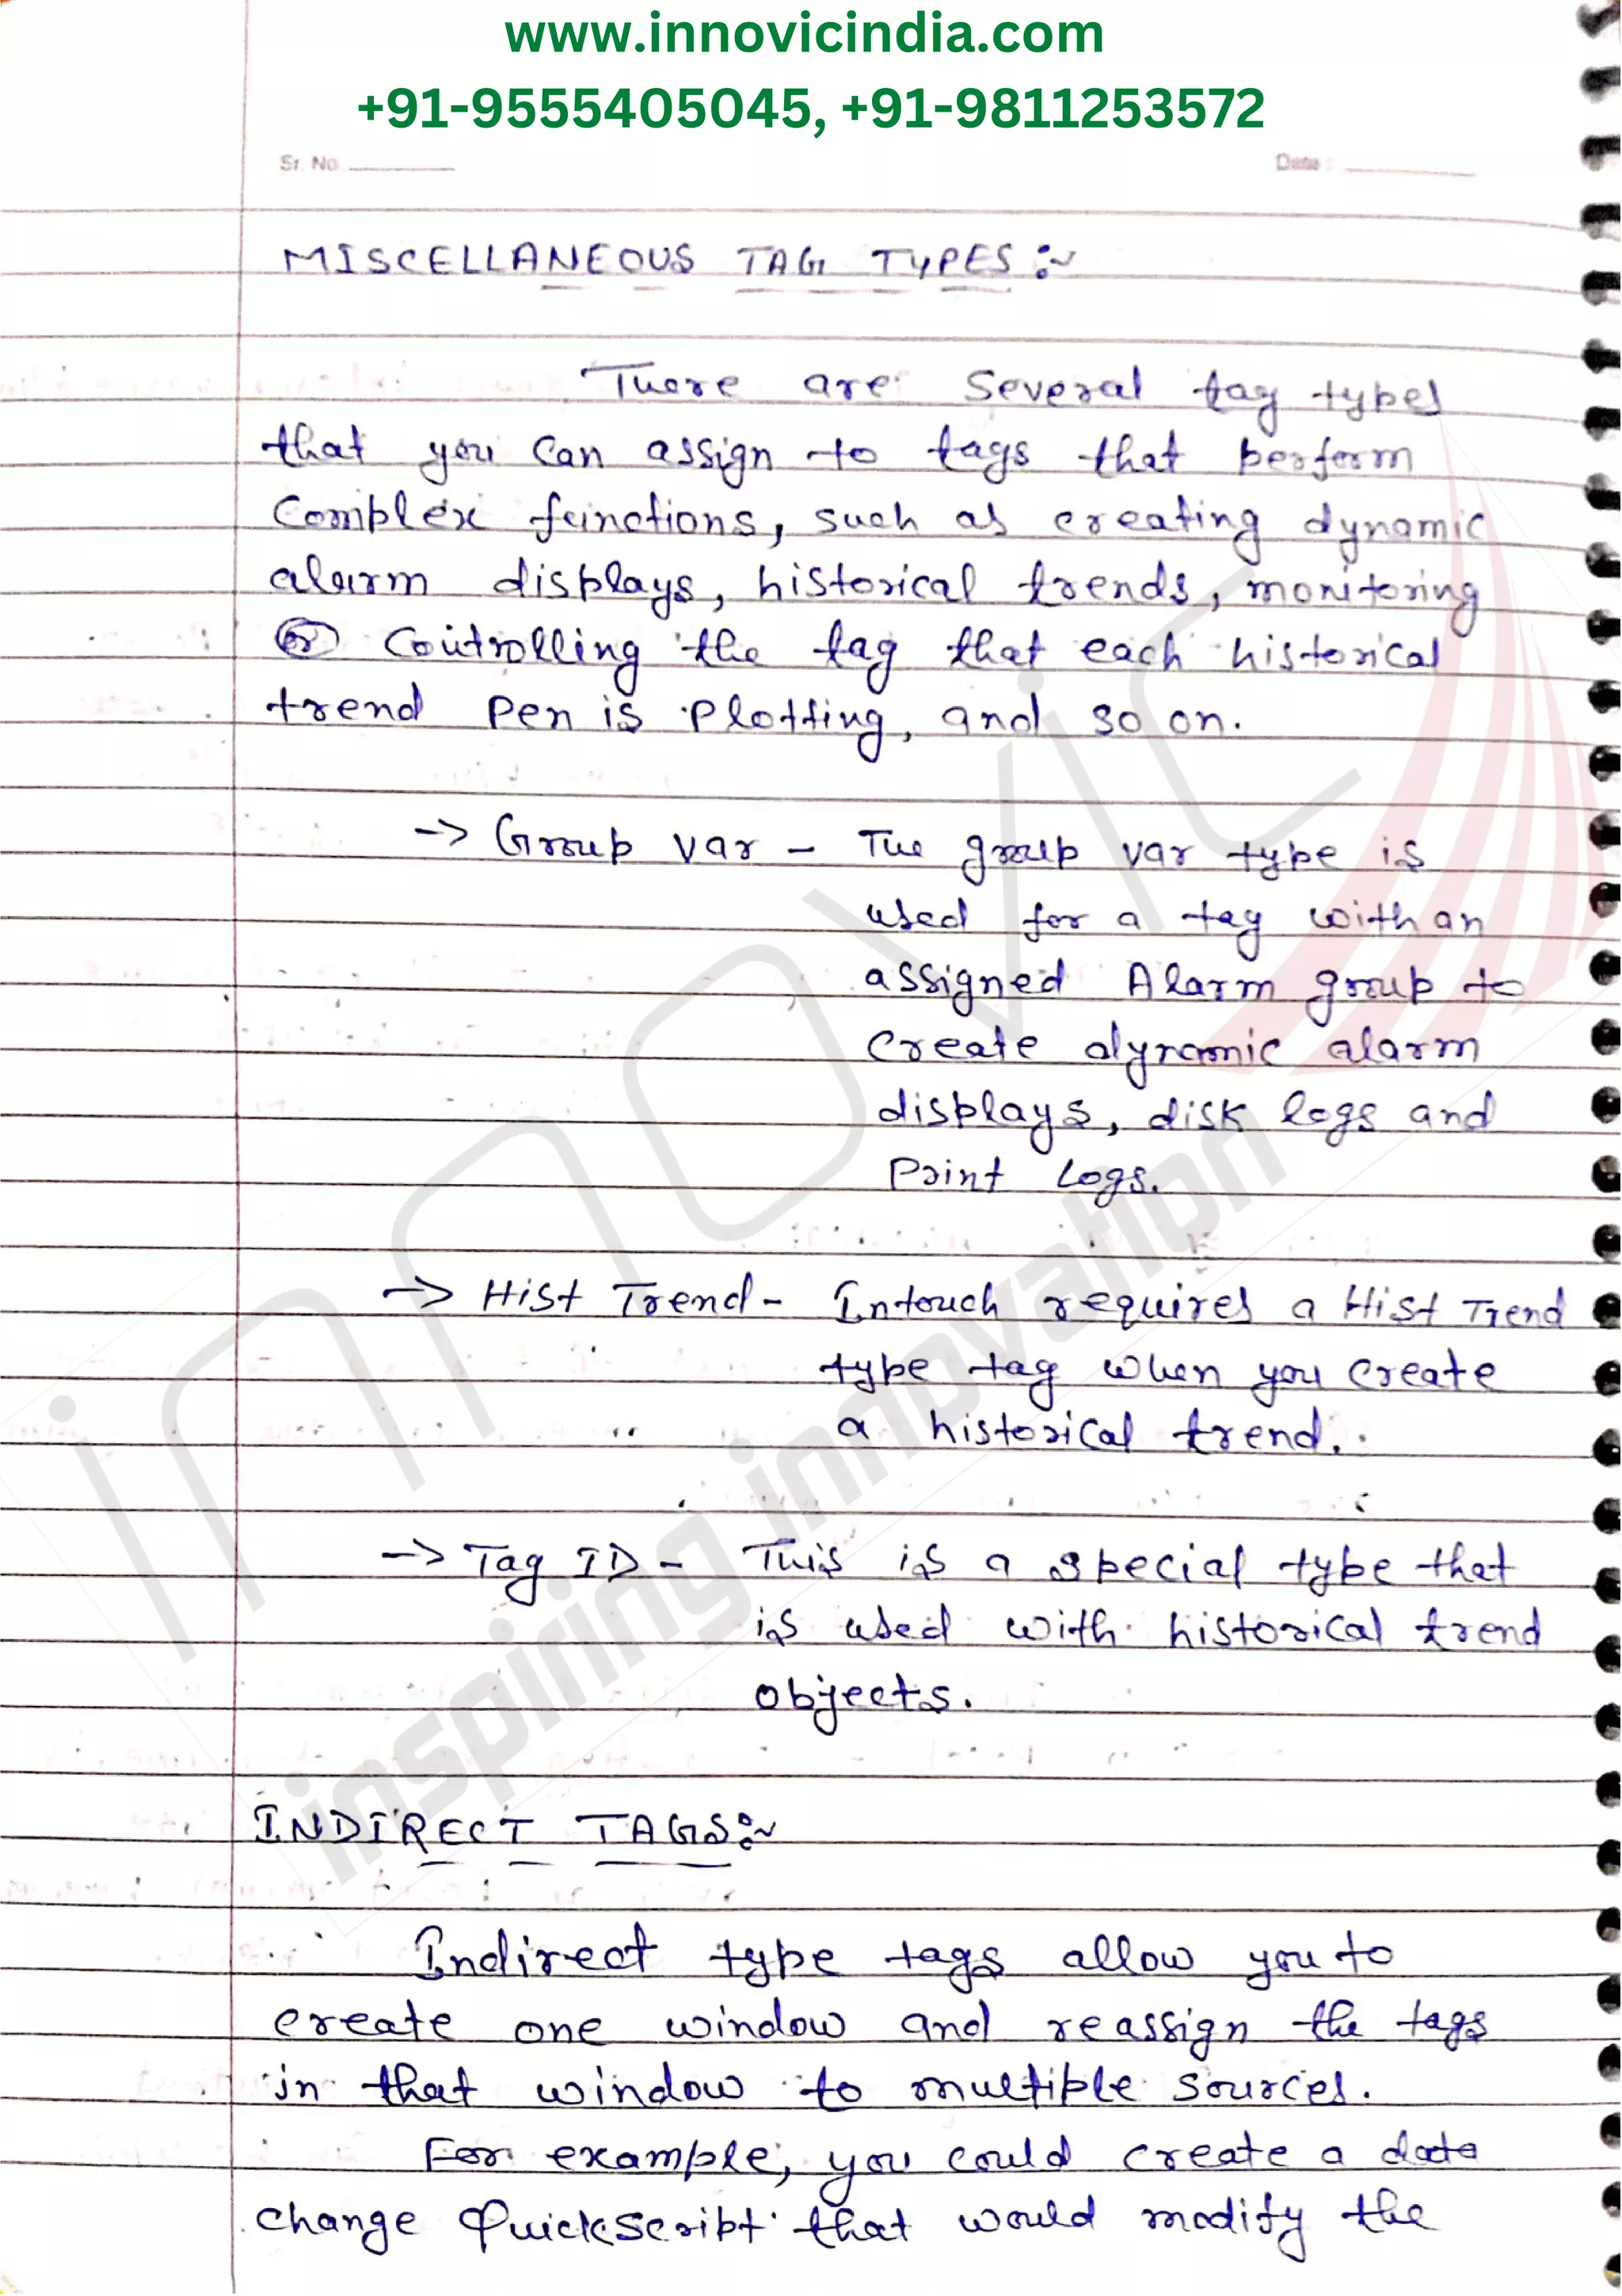 www.innovicindia.com
+91-9555405045, +91-9811253572
Sr. No.
Date :
MISCELLANEOUS TAG TYPES :~
There are several tag types
that you can assign to tags that perform
complex functions, such as creating dynamic
alarm displays, historical trends, monitoring
or controlling the tag that each historical
trend pen is plotting, and so on.
-> Group var - The group var type is
used for a tag with an
assigned Alarm group to
create dynamic alarm
displays, disk logs and
Print Logs.
-> Hist Trend - Intouch requires a Hist Trend
type tag when you create
a historical trend.
-> Tag ID - This is a special type that
is used with historical trend
objects.
INDIRECT TAGS :~
Indirect type tags allow you to
create one window and reassign the tags
in that window to multiple sources.
For example, you could create a data
change Quickscript that would modify the
innovic
inspiring innovation